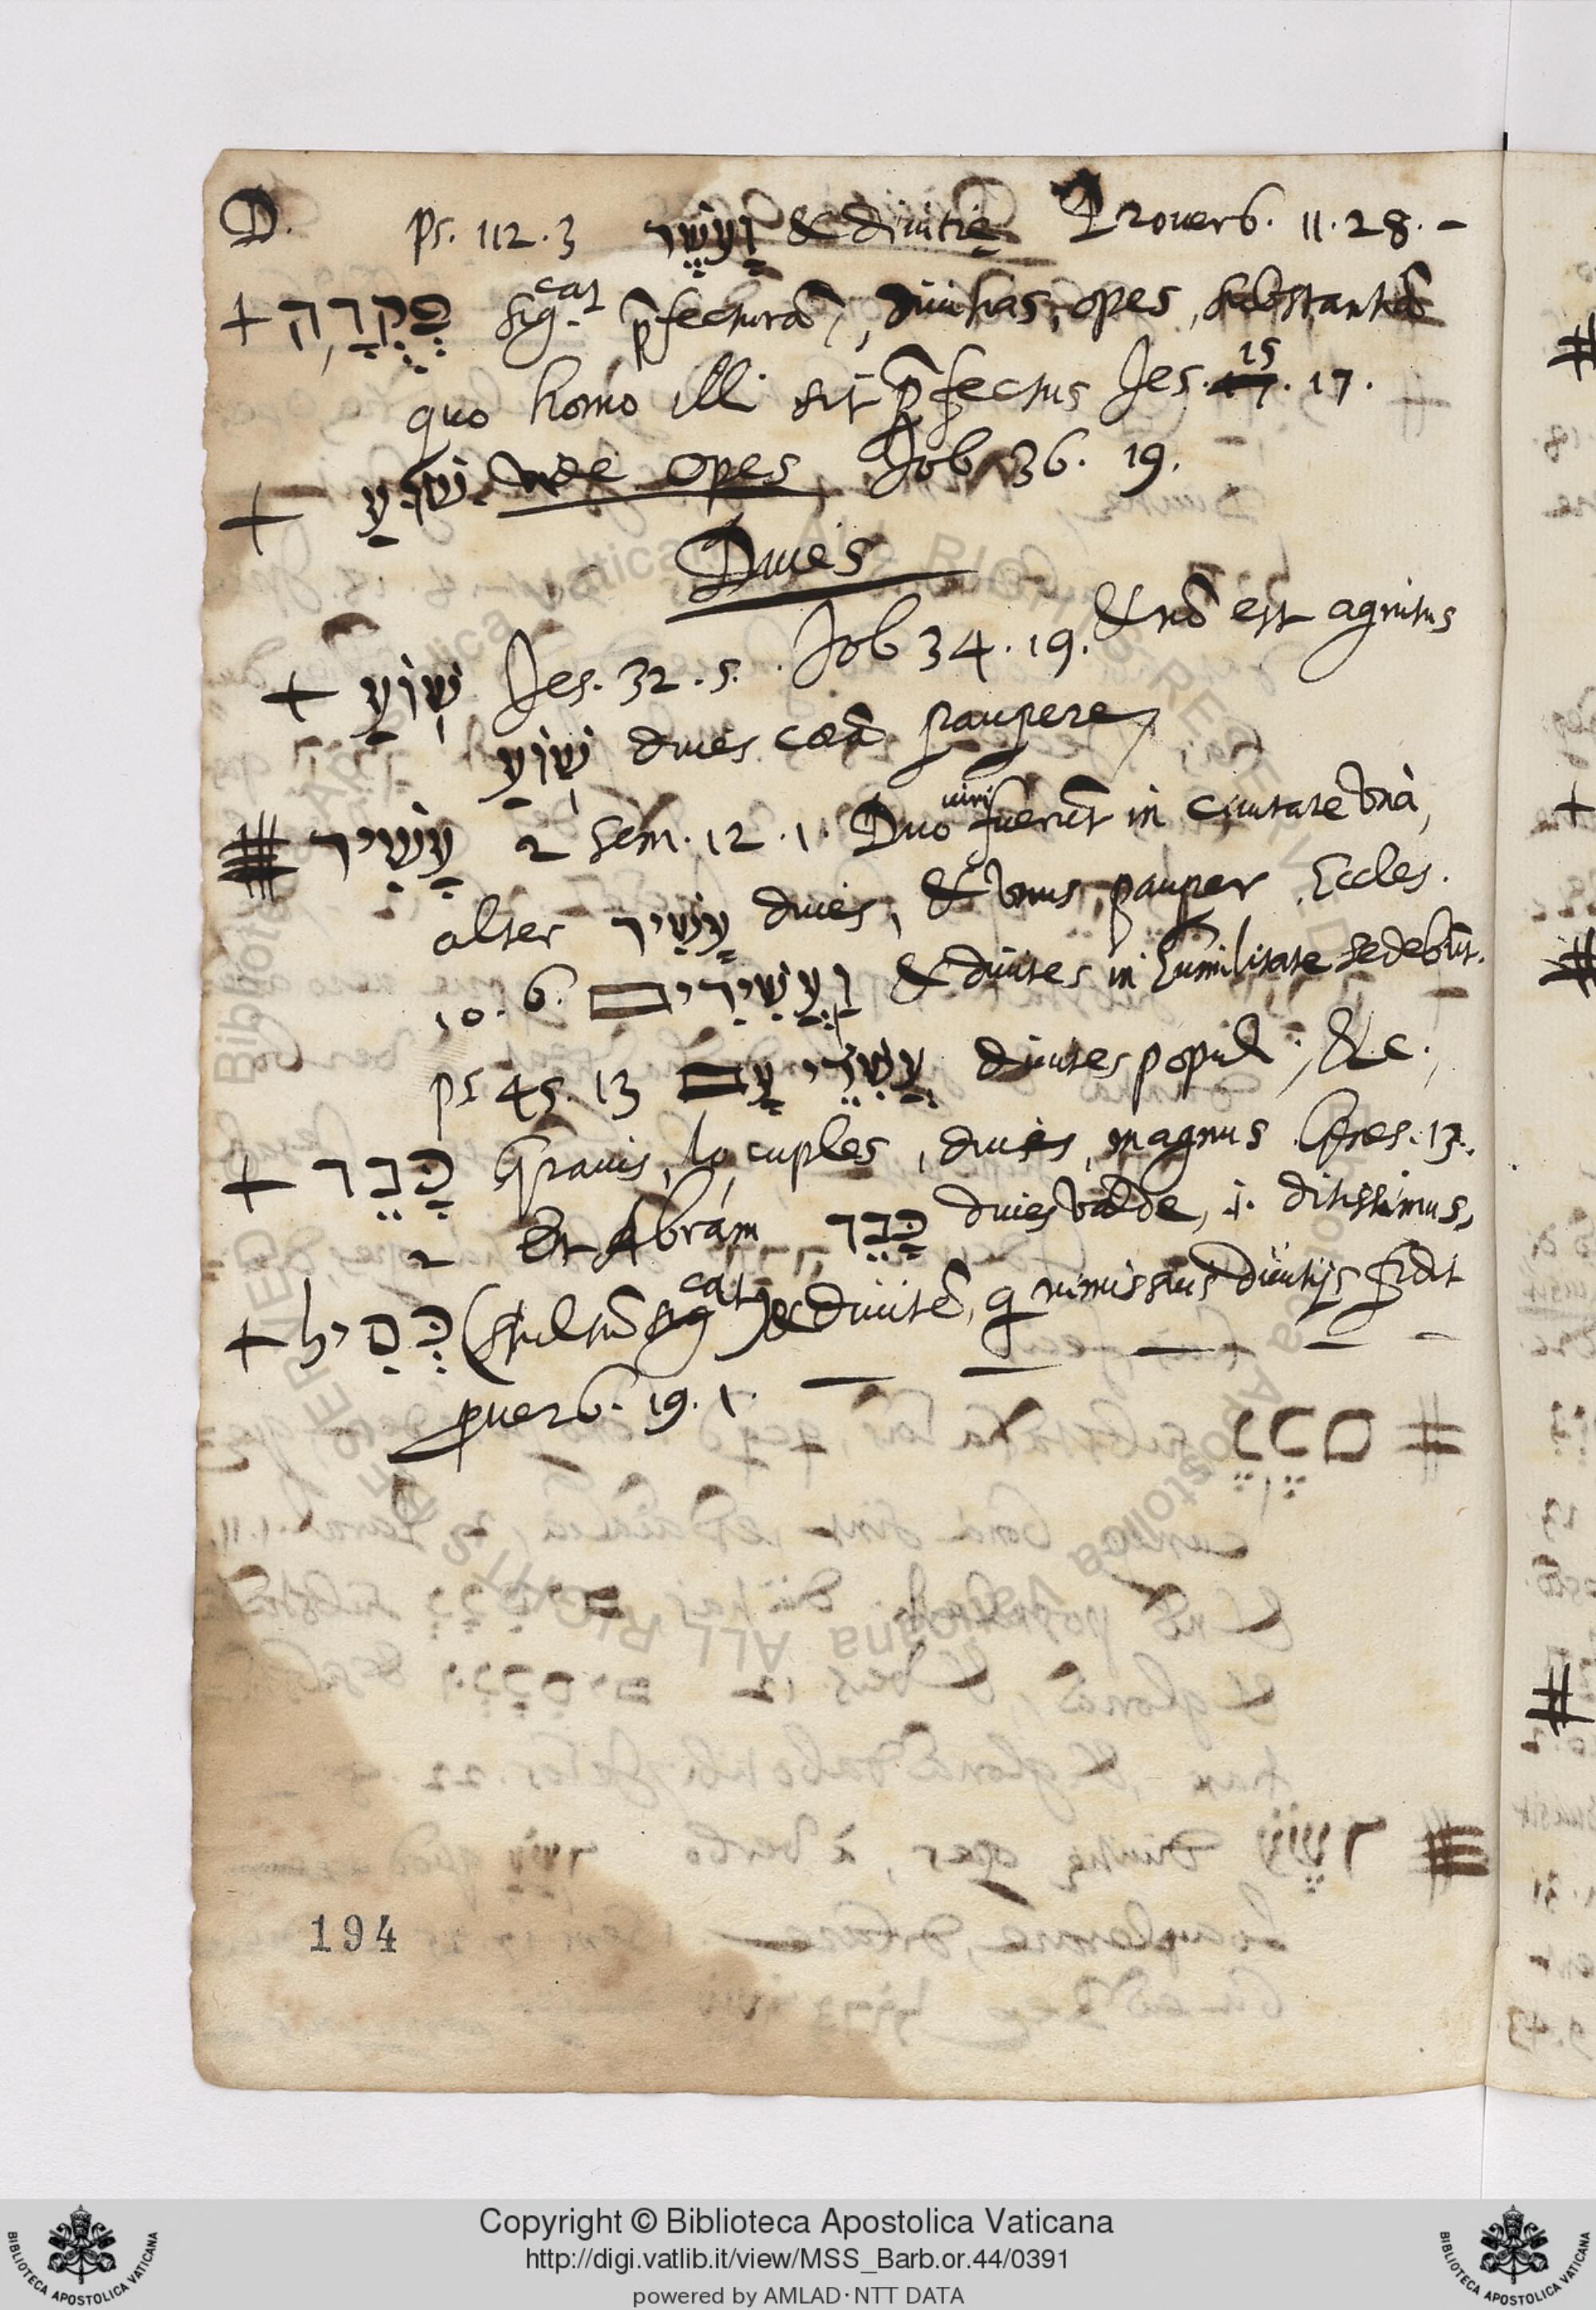 D. ps. 112. 3 וָעֹשֶׁר & diuitię Prouerb. 11. 28. -
+ פְקֻדָּה sig.cat p̃fecturã, diuitias, opes, substantiã
quo homo illi sit p̃fectus Jes. 15 17.
+ שׁוֹעַ vide opes, Job 36. 19.
Diues
+ שׁוֹעַ Jes. 32. 5. Job 34. 19. & nõ est agnitus
שׁוֹעַ diues corã paupere,
עָשִׁיר 2 Sem. 12. 1. Duo viri fuerũt in ciuitate vnà,
alter עָשִׁיר diues, & vnus pauper Eccles.
10. 6. וַעֲשִׁירִים & diuites in humilitate sedebũt.
ps 45. 13 עֲשִׁירֵי עָם diuites populi, &c.
+ כָּבֵד Grauis, locuples, diues, magnus Gnes. 13.
2 Et Abram כָּבֵד diues valde, i. ditissimus,
+ כְּסִיל (stultũ sigcat) & diuitẽ, q nimis suis diuitijs fidit
prouerb. 19. 1.
194
Copyright © Biblioteca Apostolica Vaticana
http://digi.vatlib.it/view/MSS_Barb.or.44/0391
powered by AMLAD·NTT DATA
BIBLIOTECA APOSTOLICA VATICANA
BIBLIOTECA APOSTOLICA VATICANA